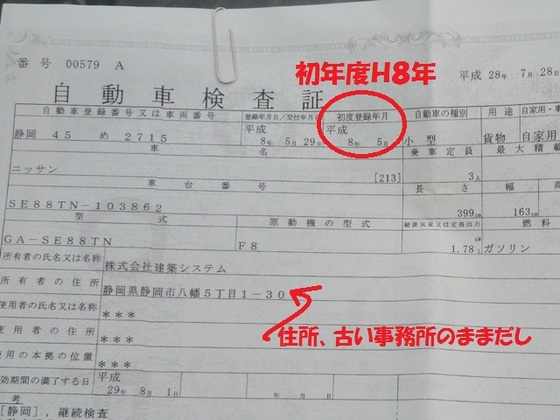 番号 00579 A
初年度H8年
平成 28年 7月 28
自動車検査証
自動車登録番号又は車両番号 登録年月日/交付年月日 初度登録年月 自動車の種別 用途 自家用・事
静岡 45 め 2715 平成 8年 5月 29日 平成 8年 5月 小型 貨物 自家用
車名 乗車定員 最大積
ニッサン [213] 3人
車台番号 長さ 幅 高
SE88TN-103862 399cm 163cm
型式 原動機の型式 総排気量又は定格出力 燃料
GA-SE88TN F8 1.78 ガソリン
所有者の氏名又は名称 株式会社建築システム
所有者の住所 静岡県静岡市八幡5丁目1-30
使用者の氏名又は名称 ***
住所、古い事務所のままだし
使用者の住所 ***
使用の本拠の位置 ***
効期間の満了する日 平成 29年 8月 1日 年 月 日
考
[静岡], 継続検査